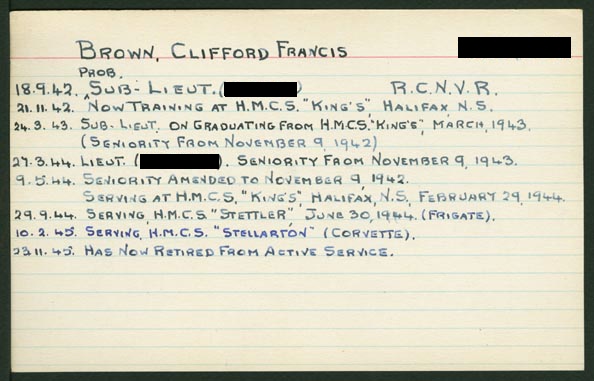 BROWN, CLIFFORD FRANCIS
PROB.
18.9.42. SUB-LIEUT. ( ) R.C.N.V.R.
21.11.42. NOW TRAINING AT H.M.C.S. "KING'S", HALIFAX, N.S.
24.3.43. SUB-LIEUT. ON GRADUATING FROM H.M.C.S. "KING'S", MARCH, 1943.
(SENIORITY FROM NOVEMBER 9, 1942)
27.3.44. LIEUT. ( ). SENIORITY FROM NOVEMBER 9, 1943.
9.5.44. SENIORITY AMENDED TO NOVEMBER 9, 1942.
SERVING AT H.M.C.S. "KING'S", HALIFAX, N.S., FEBRUARY 29, 1944.
29.9.44. SERVING, H.M.C.S. "STETTLER" JUNE 30, 1944. (FRIGATE).
10.2.45. SERVING, H.M.C.S. "STELLARTON" (CORVETTE).
23.11.45. HAS NOW RETIRED FROM ACTIVE SERVICE.